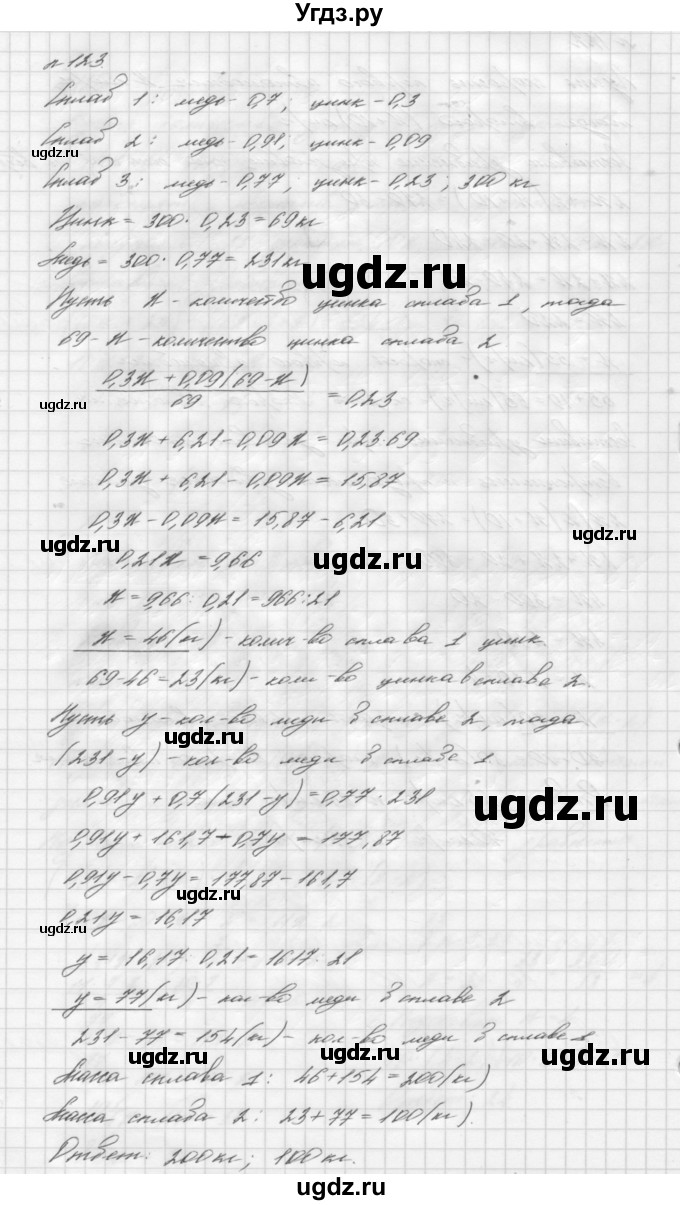 Угдз.ру
№123
Сплав 1: медь-0,7, цинк-0,3
Сплав 2: медь-0,91, цинк-0,09
ugdz.ru
Сплав 3: медь-0,77, цинк-0,23; 300 кг
Цинк = 300·0,23=69кг
Медь = 300·0,77=231кг
ugdz.ru
Пусть х-количество цинка сплава 1, тогда
69-х-количество цинка сплава 2
(0,3х+0,09(69-х))/69 = 0,23
ugdz.ru
0,3х+6,21-0,09х=0,23·69
0,3х+6,21-0,09х=15,87
0,3х-0,09х=15,87-6,21
ugdz.ru
ugdz.ru
0,21х=9,66
ugdz.ru
х=9,66:0,21=966:21
х=46(кг)-колич-во сплава 1 цинк.
69-46=23(кг)-коли-во цинка в сплаве 2.
Пусть у-кол-во меди в сплаве 2, тогда
ugdz.ru
(231-у)-кол-во меди в сплаве 1
0,91у+0,7(231-у)=0,77·231
ugdz.ru
0,91у+161,7-0,7у=177,87
0,91у-0,7у=177,87-161,7
ugdz.ru
0,21у=16,17
ugdz.ru
у=16,17:0,21=1617:21
у=77(кг)-кол-во меди в сплаве 2
231-77=154(кг)-кол-во меди в сплаве 1
ugdz.ru
ugdz.ru
ugdz.ru
Масса сплава 1: 46+154=200(кг)
Масса сплава 2: 23+77=100(кг).
Ответ: 200кг; 100кг.
ugdz.ru